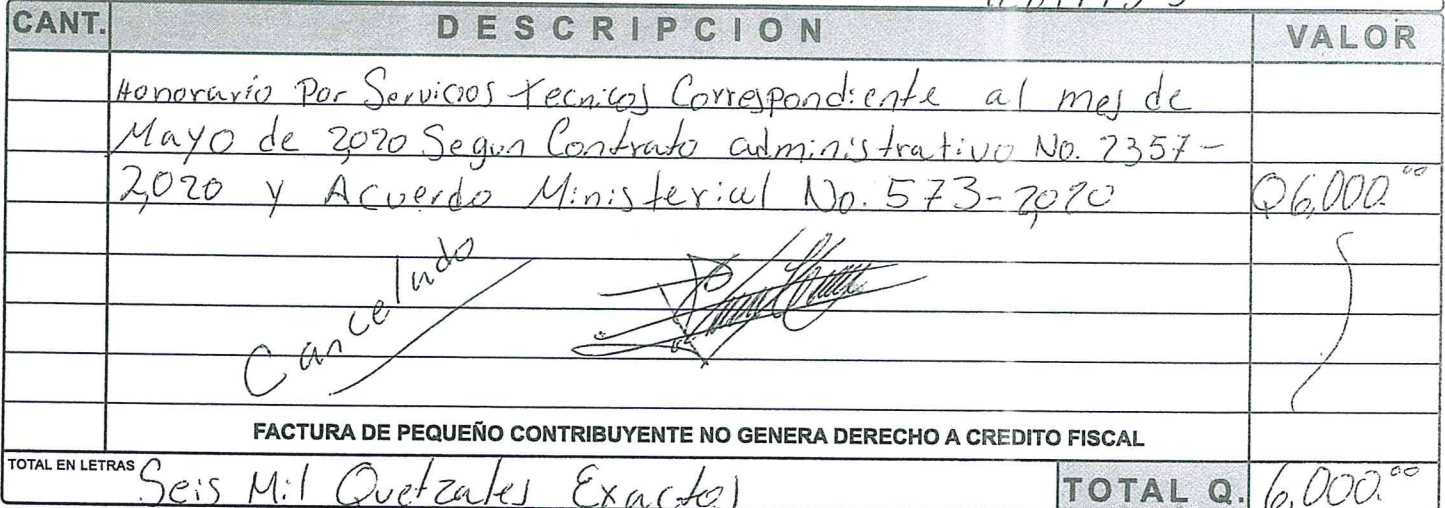 CANT. DESCRIPCION VALOR
Honorario Por Servicios Tecnicos Correspondiente al mes de
Mayo de 2,020 Segun Contrato administrativo No. 2357-
2,020 y Acuerdo Ministerial No. 573-2,020 Q6,000.00
Cancelado
FACTURA DE PEQUEÑO CONTRIBUYENTE NO GENERA DERECHO A CREDITO FISCAL
TOTAL EN LETRAS Seis Mil Quetzales Exactos TOTAL Q. 6,000.00